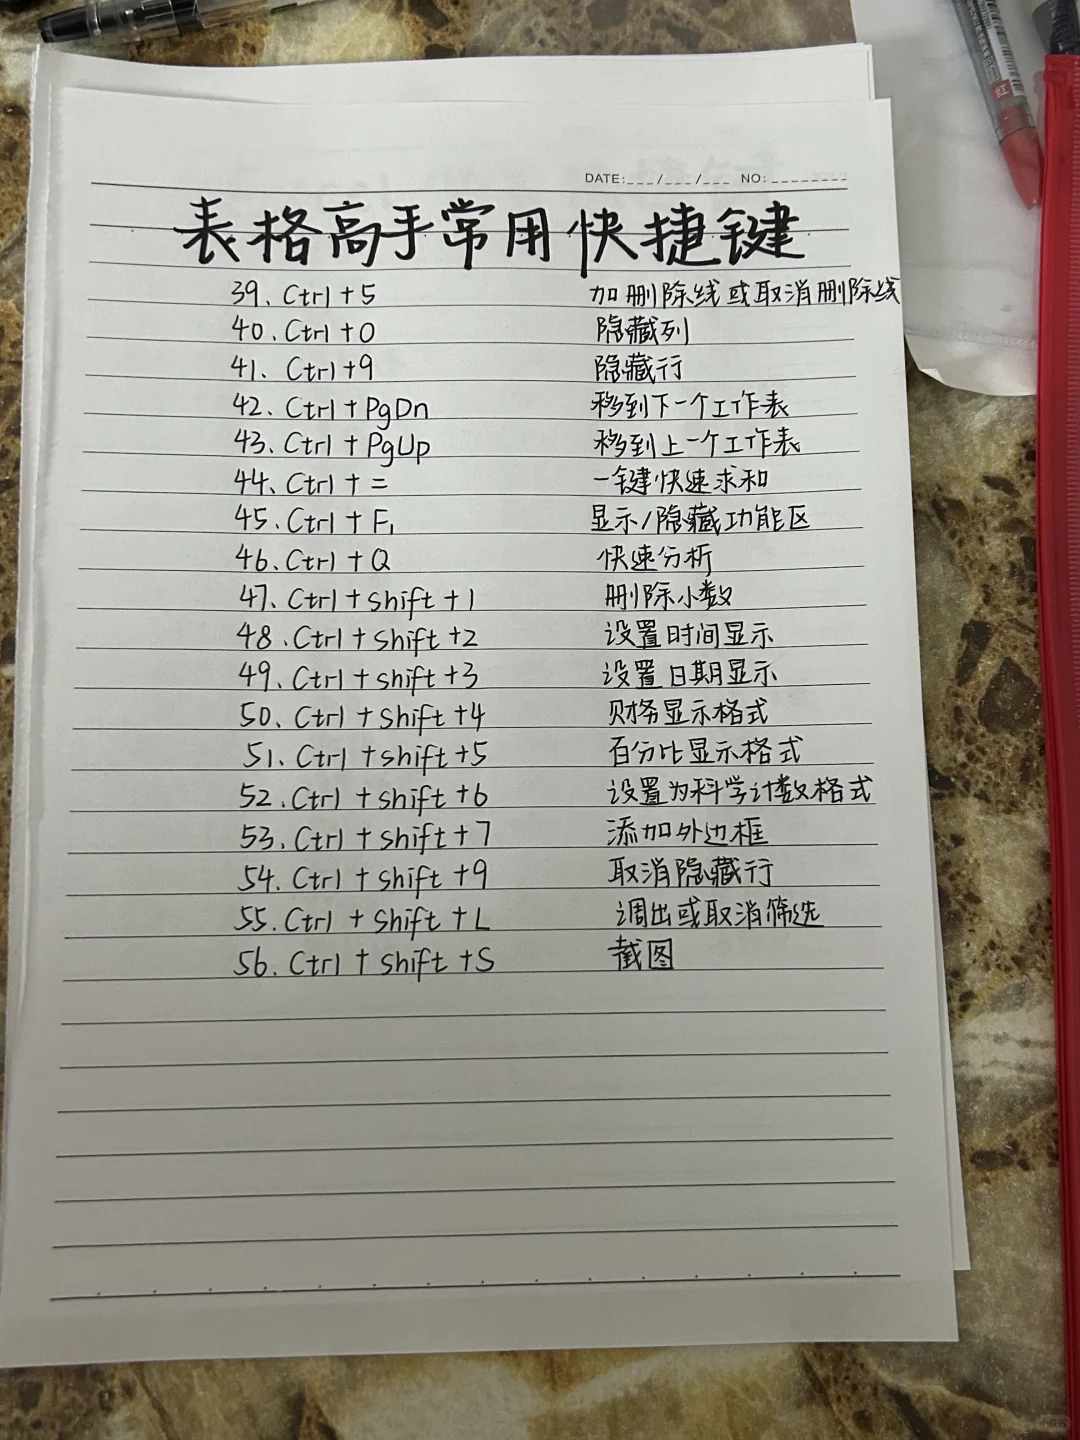 DATE:___/___/___ NO:________
表格高手常用快捷键
39、Ctrl+5 加删除线或取消删除线
40、Ctrl+0 隐藏列
41、Ctrl+9 隐藏行
42、Ctrl+PgDn 移到下一个工作表
43、Ctrl+PgUp 移到上一个工作表
44、Ctrl+= 一键快速求和
45、Ctrl+F1 显示/隐藏功能区
46、Ctrl+Q 快速分析
47、Ctrl+shift+1 删除小数
48、Ctrl+shift+2 设置时间显示
49、Ctrl+shift+3 设置日期显示
50、Ctrl+shift+4 财务显示格式
51、Ctrl+shift+5 百分比显示格式
52、Ctrl+shift+6 设置为科学计数格式
53、Ctrl+shift+7 添加外边框
54、Ctrl+shift+9 取消隐藏行
55、Ctrl+shift+L 调出或取消筛选
56、Ctrl+shift+S 截图
红
小红书